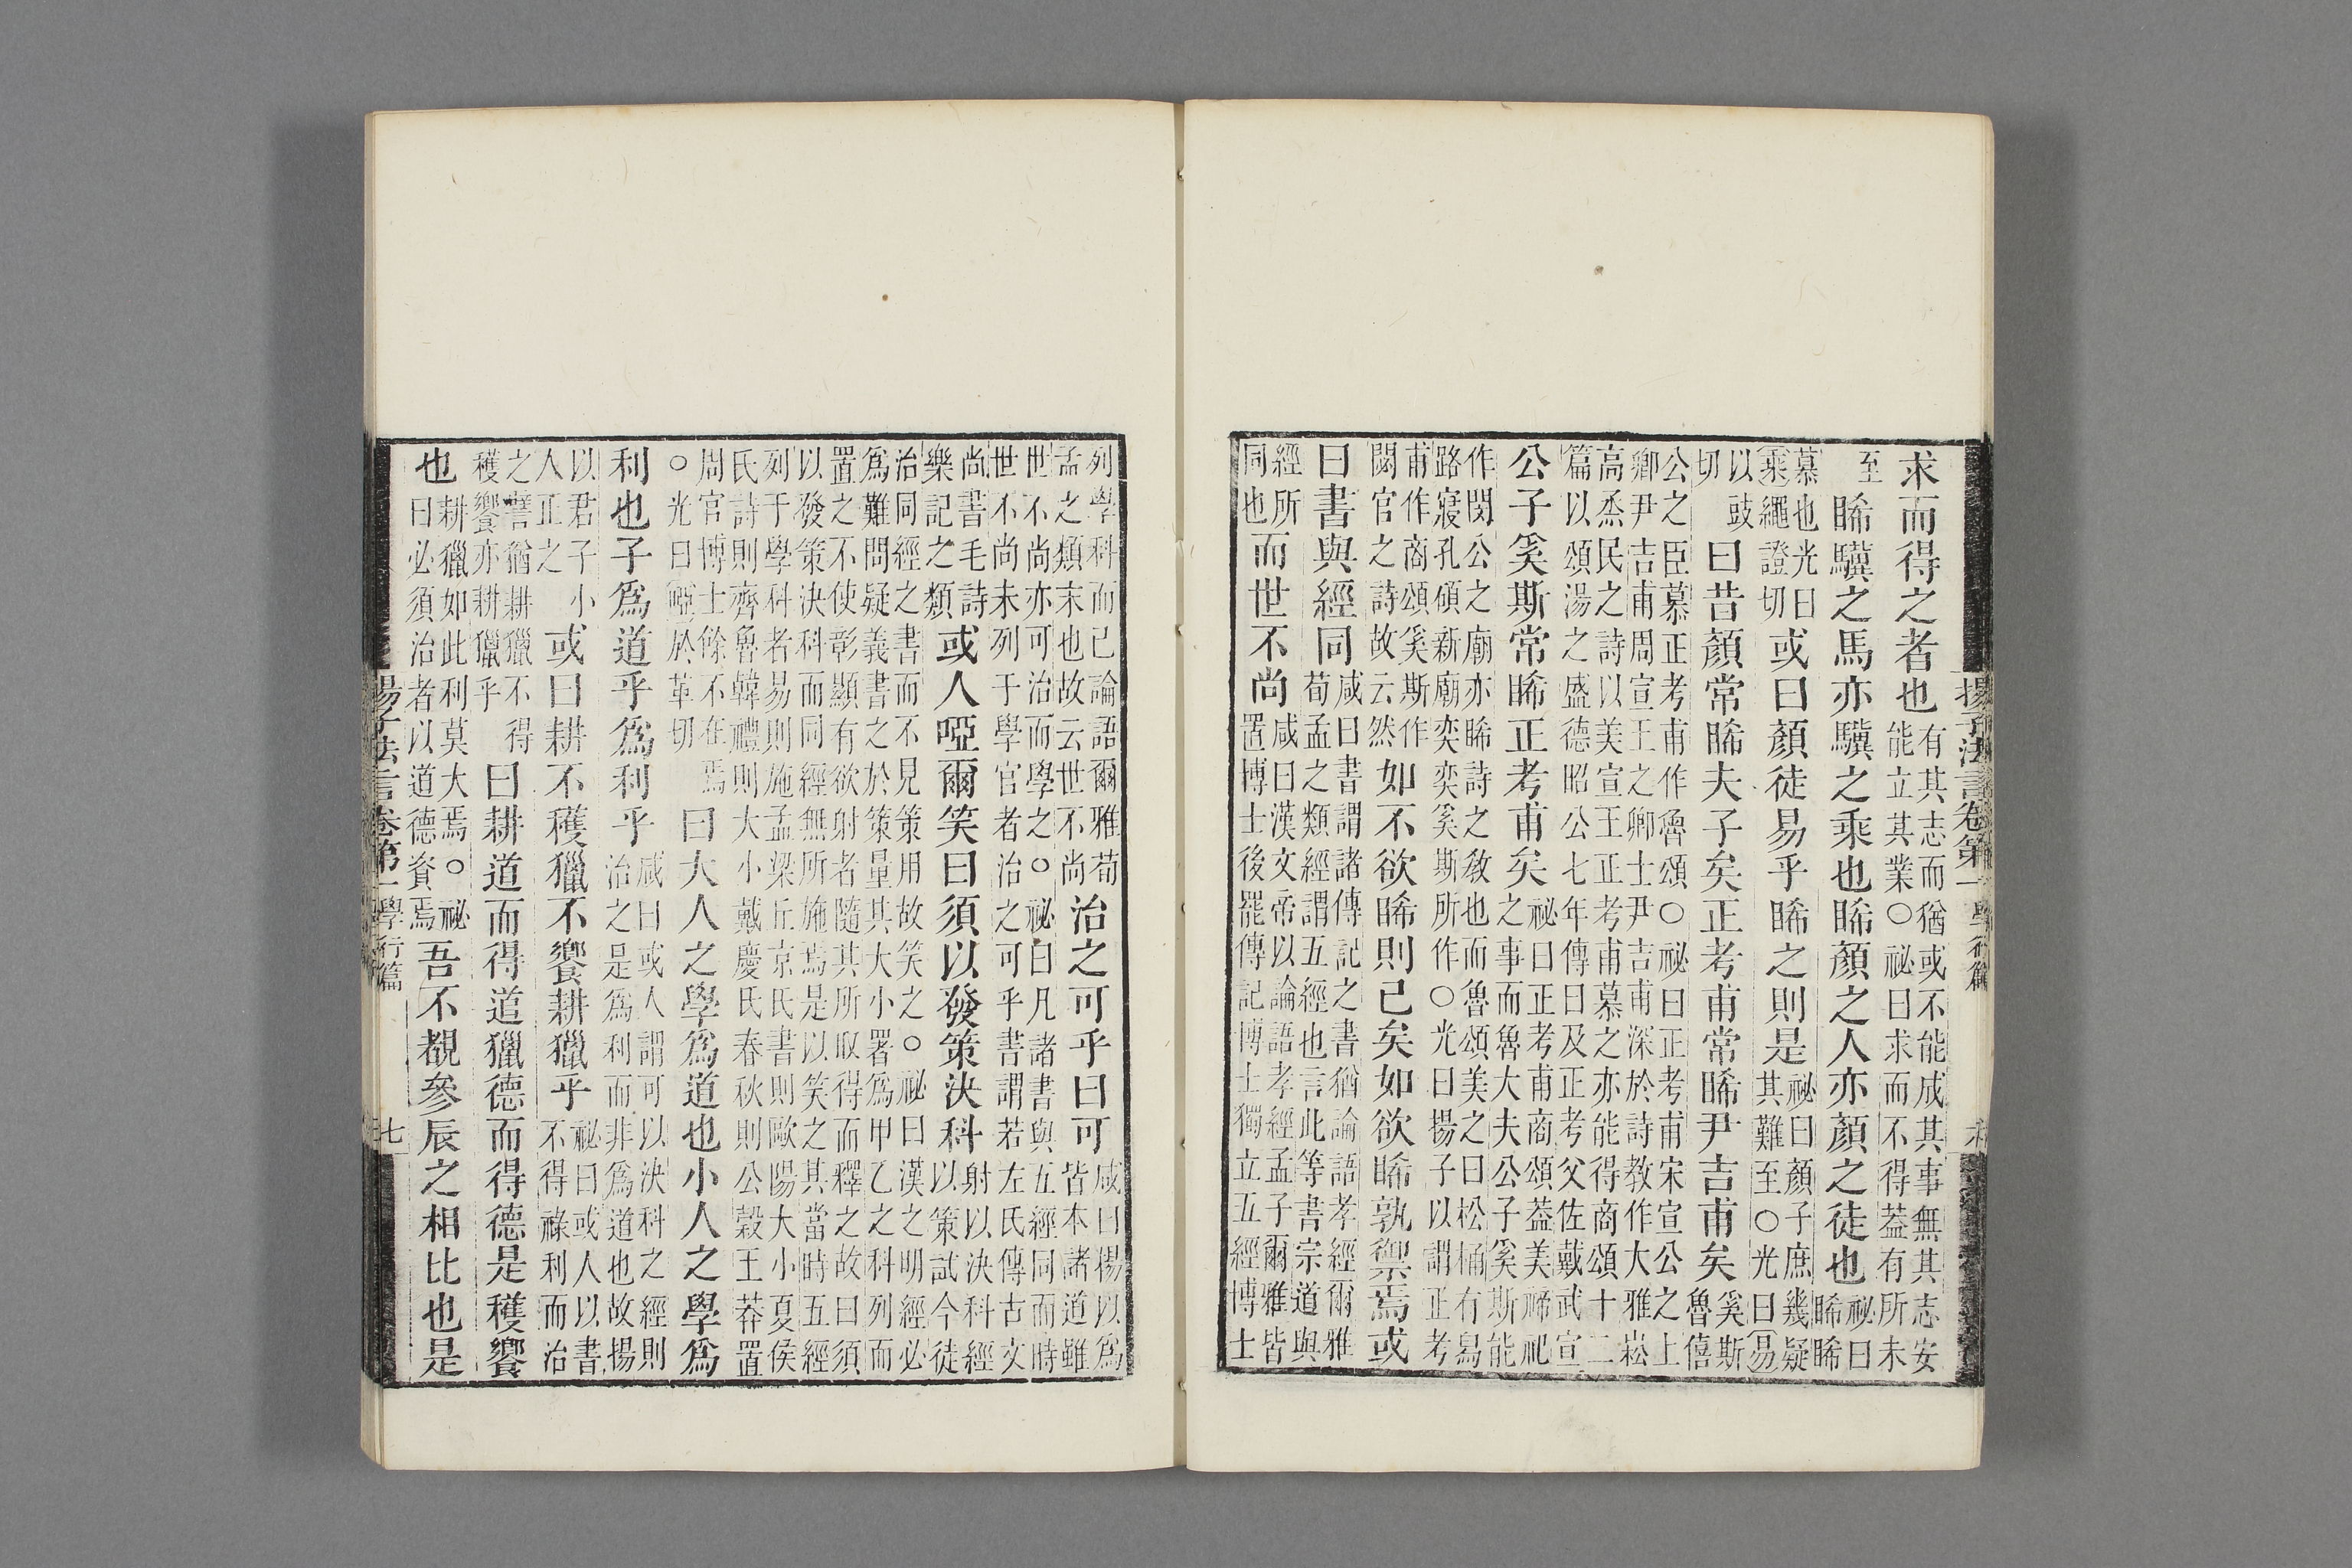 揚子法言卷第一 學行篇
求而得之者也
有其志而猶或不能成其事無其志安
能立其業○祕曰求而不得葢有所未
至
睎驥之馬亦驥之乘也睎顏之人亦顏之徒也
祕曰
睎睎
慕也光曰
乘繩證切
或曰顏徒易乎睎之則是
祕曰顏子庶幾疑
其難至○光曰易
以豉
切
曰昔顏常睎夫子矣正考甫常睎尹吉甫矣
奚斯
魯僖
公之臣慕正考甫作魯頌○祕曰正考甫宋宣公之上
卿尹吉甫周宣王之卿士尹吉甫深於詩教作大雅崧
高烝民之詩以美宣王正考甫慕之亦能得商頌十二
篇以頌湯之盛德昭公七年傳曰及正考父佐戴武宣
公子奚斯常睎正考甫矣
祕曰正考甫商頌葢美禘祀
之事而魯大夫公子奚斯能
作閔公之廟亦睎詩之敎也而魯頌美之曰松桷有舄
路寢孔碩新廟奕奕奚斯所作○光曰揚子以謂正考
甫作商頌奚斯作
閟官之詩故云然
如不欲睎則已矣如欲睎孰禦焉或
曰書與經同
咸曰書謂諸傳記之書猶論語孝經爾雅
荀孟之類經謂五經也言此等書宗道與
經所
同也
而世不尚
咸曰漢文帝以論語孝經孟子爾雅皆
置博士後罷傳記博士獨立五經博士
列學科而已論語爾雅荀
孟之類末也故云世不尚
治之可乎曰可
咸曰揚以爲
皆本諸道雖
世不尚亦可治而學之○祕曰凡諸書與五經同而時
世不尚未列于學官者治之可乎書謂若左氏傳古文
尚書毛詩
樂記之類
或人啞爾笑曰須以發策決科
射以決科經
以策試今徒
治同經之書而不見策用故笑之○祕曰漢之明經必
爲難問疑義書之於策量其大小署爲甲乙之科列而
置之不使彰顯有欲射者隨其所取得而釋之故曰須
以發策決科而同經無所施焉是以笑之其當時五經
列于學科者易則施孟梁丘京氏書則歐陽大小夏侯
氏詩則齊魯韓禮則大小戴慶氏春秋則公穀王莽置
周官博士餘不在焉
○光曰啞於革切
曰大人之學爲道也小人之學爲
利也子爲道乎爲利乎
咸曰或人謂可以決科之經則
治之是爲利而非爲道也故揚
以君子小
人正之
或曰耕不穫獵不饗耕獵乎
祕曰或人以書
不得祿利而治
之譬猶耕獵不得
穫饗亦耕獵乎
曰耕道而得道獵德而得德是穫饗
也
耕獵如此利莫大焉○祕
曰必須治者以道德資焉
吾不覩參辰之相比也是
揚子法言卷第一 學行篇
七